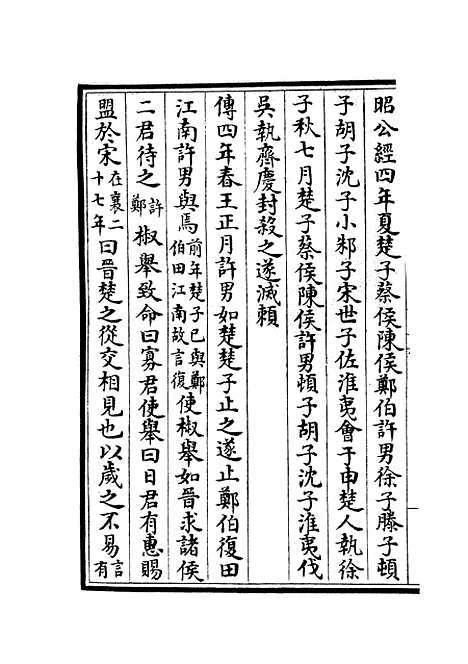 昭公經四年夏楚子蔡侯陳侯鄭伯許男徐子滕子頓
子胡子沈子小邾子宋世子佐淮夷會于申楚人執徐
子秋七月楚子蔡侯陳侯許男頓子胡子沈子淮夷伐
吳執齊慶封殺之遂滅賴
傳四年春王正月許男如楚楚子止之遂止鄭伯復田
江南許男與焉前年楚子已與鄭伯田江南故言復使椒舉如晉求諸侯
二君待之許鄭椒舉致命曰寡君使舉曰日君有惠賜
盟於宋在襄二十七年曰晉楚之從交相見也以歲之不易言有